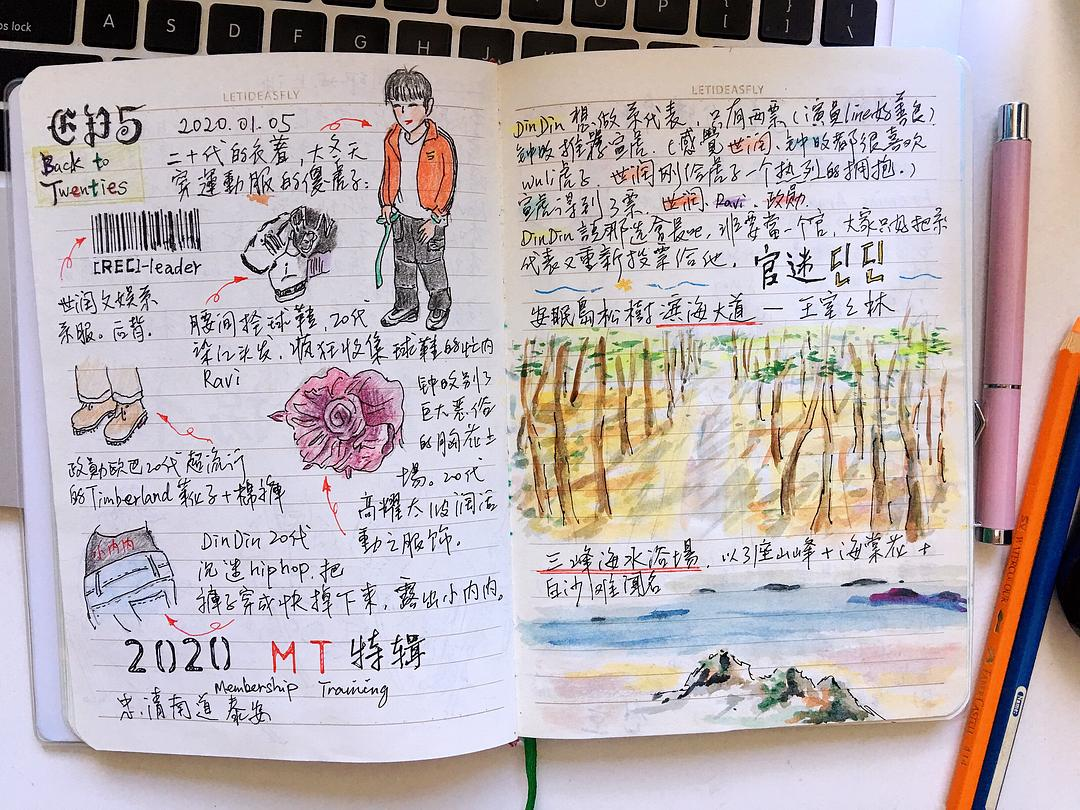 LETIDEASFLY
EP5
2020.01.05
Back to
Twenties
二十代的衣着,大冬天
穿運動服的傻虎子:
[REC]-leader
世润文娱系
系服。后背.
腰间拴球鞋,20代
涂江头发,瘋狂收集球鞋的忙内
Ravi
钟旼别了
巨大恶俗
的胸花上
場。20代
高耀太 波润活
動之服饰.
政勛欧巴20代超流行
的Timberland靴子+棉褲
小内内
DinDin 20代
沉迷hiphop,把
褲子穿成快掉下來,露出小内内。
2020 MT 特辑
Membership Training
忠清南道泰安
LETIDEASFLY
DinDin想做系代表,只有两票(演員line好善良)
钟旼推薦宣虎.(感覺世润、钟旼都很喜欢
wuli虎子.世润刚给虎子一个热烈的拥抱.)
宣虎得到3票.世润、Ravi、政勛.
DinDin說那选會長吧,非要當一个官,大家只好把系
代表又重新投票给他. 官迷딘딘
安眠島松樹濱海大道 — 王室之林
三峰海水浴場,以3座山峰+海棠花+
白沙滩闻名